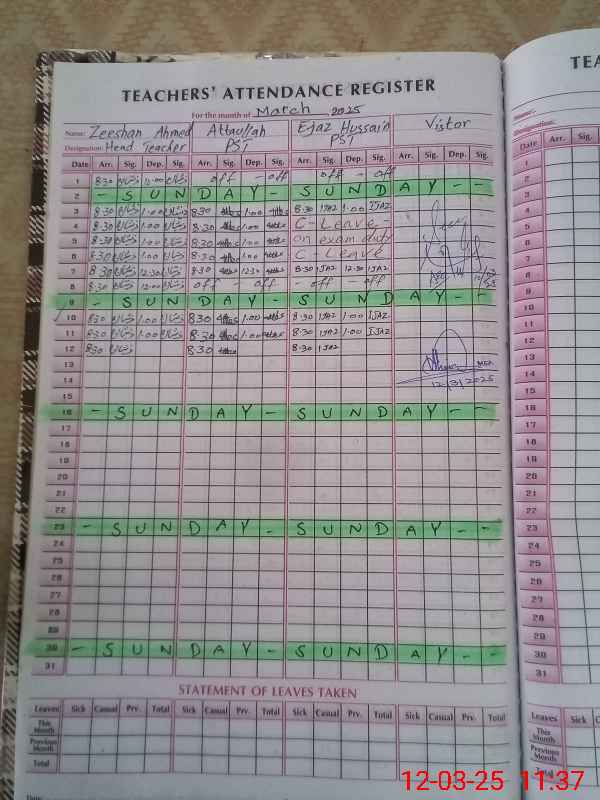 TEACHERS' ATTENDANCE REGISTER
For the month of March 2025
Name: Zeeshan Ahmed Attaullah Ejaz Hussain Vistor
Designation: Head Teacher PST PST
Date Arr. Sig. Dep. Sig. Arr. Sig. Dep. Sig. Arr. Sig. Dep. Sig. Arr. Sig. Dep. Sig.
1 8:30 12:00 off - off off - off
2 - S U N D A Y - S U N D A Y - -
3 8:30 1:00 8:30 1:00 8:30 IJAZ 1:00 IJAZ
4 8:30 1:00 8:30 1:00 C - Leave
5 8:30 1:00 8:30 1:00 on exam duty
6 8:30 1:00 8:30 1:00 C - Leave
7 8:30 12:30 8:30 12:30 8:30 IJAZ 12:30 IJAZ
8 8:30 12:00 off - off - off - off
9 - S U N D A Y - S U N D A Y - -
10 8:30 1:00 8:30 1:00 8:30 IJAZ 1:00 IJAZ
11 8:30 1:00 8:30 1:00 8:30 IJAZ 1:00 IJAZ
12 8:30 8:30 8:30 IJAZ
13
14
12/3/2025
15
16 - S U N D A Y - S U N D A Y - -
17
18
19
20
21
22
23 - S U N D A Y - S U N D A Y - -
24
25
26
27
28
29
30 - S U N D A Y - S U N D A Y - -
31
STATEMENT OF LEAVES TAKEN
Leaves Sick Casual Prv. Total Sick Casual Prv. Total Sick Casual Prv. Total Sick Casual Prv. Total
This Month
Previous Month
Total
TEA
Name:
Designation:
Date Arr. Sig.
1
2
3
4
5
6
7
8
9
10
11
12
13
14
15
16
17
18
19
20
21
22
23
24
25
26
27
28
29
30
31
Leaves Sick
This Month
Previous Month
Total
12-03-25 11:37